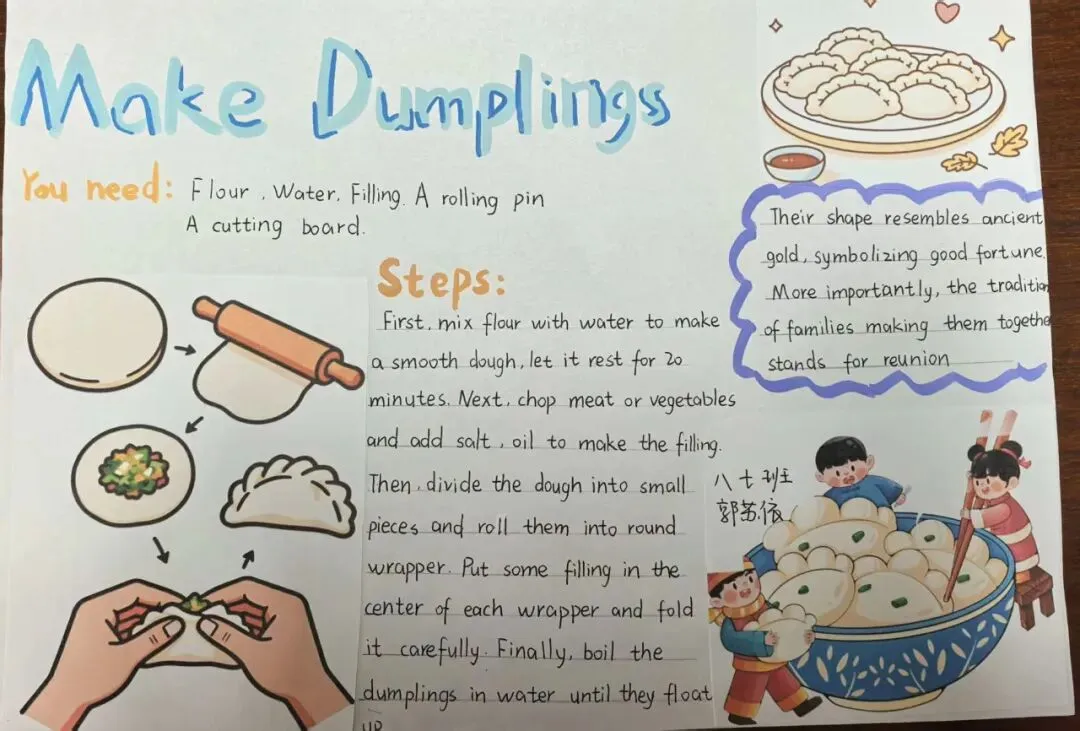 Make Dumplings
You need: Flour, Water, Filling. A rolling pin
A cutting board.
Steps:
First, mix flour with water to make
a smooth dough, let it rest for 20
minutes. Next, chop meat or vegetables
and add salt, oil to make the filling.
Then, divide the dough into small
pieces and roll them into round
wrapper. Put some filling in the
center of each wrapper and fold
it carefully. Finally, boil the
dumplings in water until they float
up
Their shape resembles ancient
gold, symbolizing good fortune.
More importantly, the tradition
of families making them together
stands for reunion
八十班
郭苏依